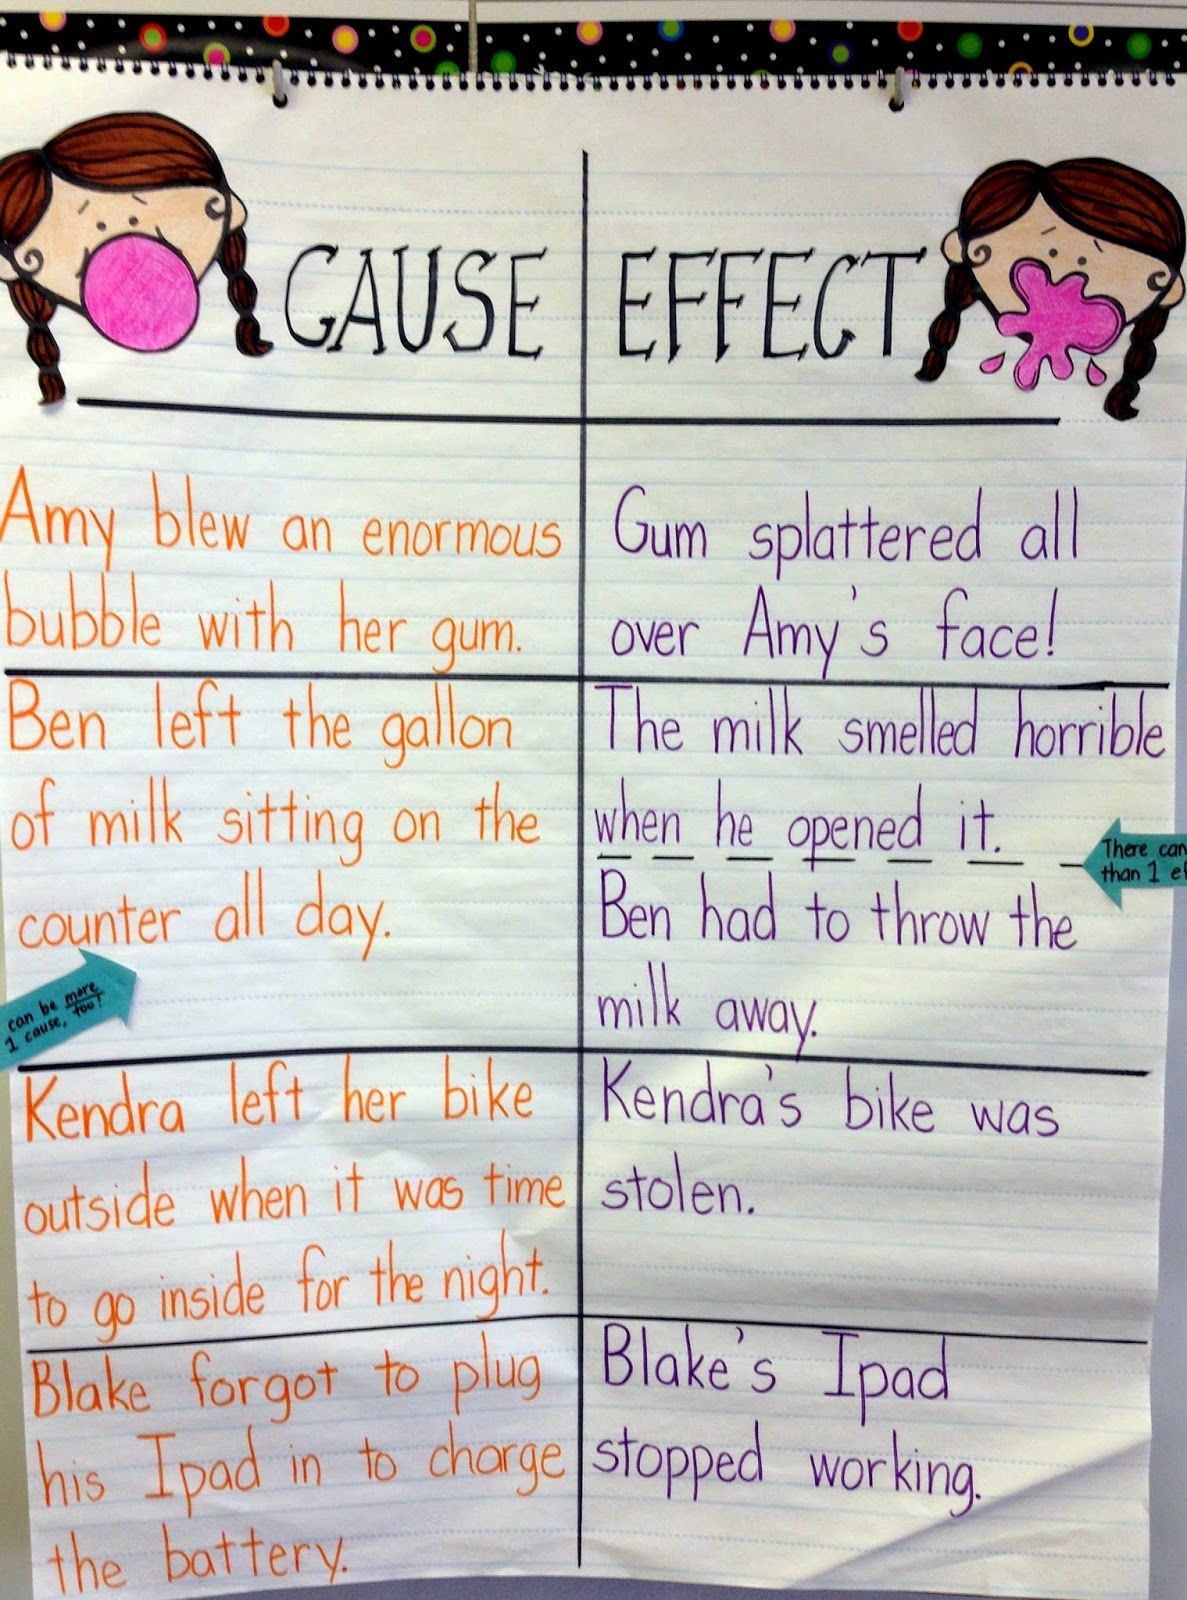 CAUSE
EFFECT
Amy blew an enormous
bubble with her gum.
Gum splattered all
over Amy's face!
Ben left the gallon
of milk sitting on the
counter all day.
can be more
1 cause, too!
The milk smelled horrible
when he opened it.
There can
than 1 ef
Ben had to throw the
milk away.
Kendra left her bike
outside when it was time
to go inside for the night.
Kendra's bike was
stolen.
Blake forgot to plug
his Ipad in to charge
the battery.
Blake's Ipad
stopped working.